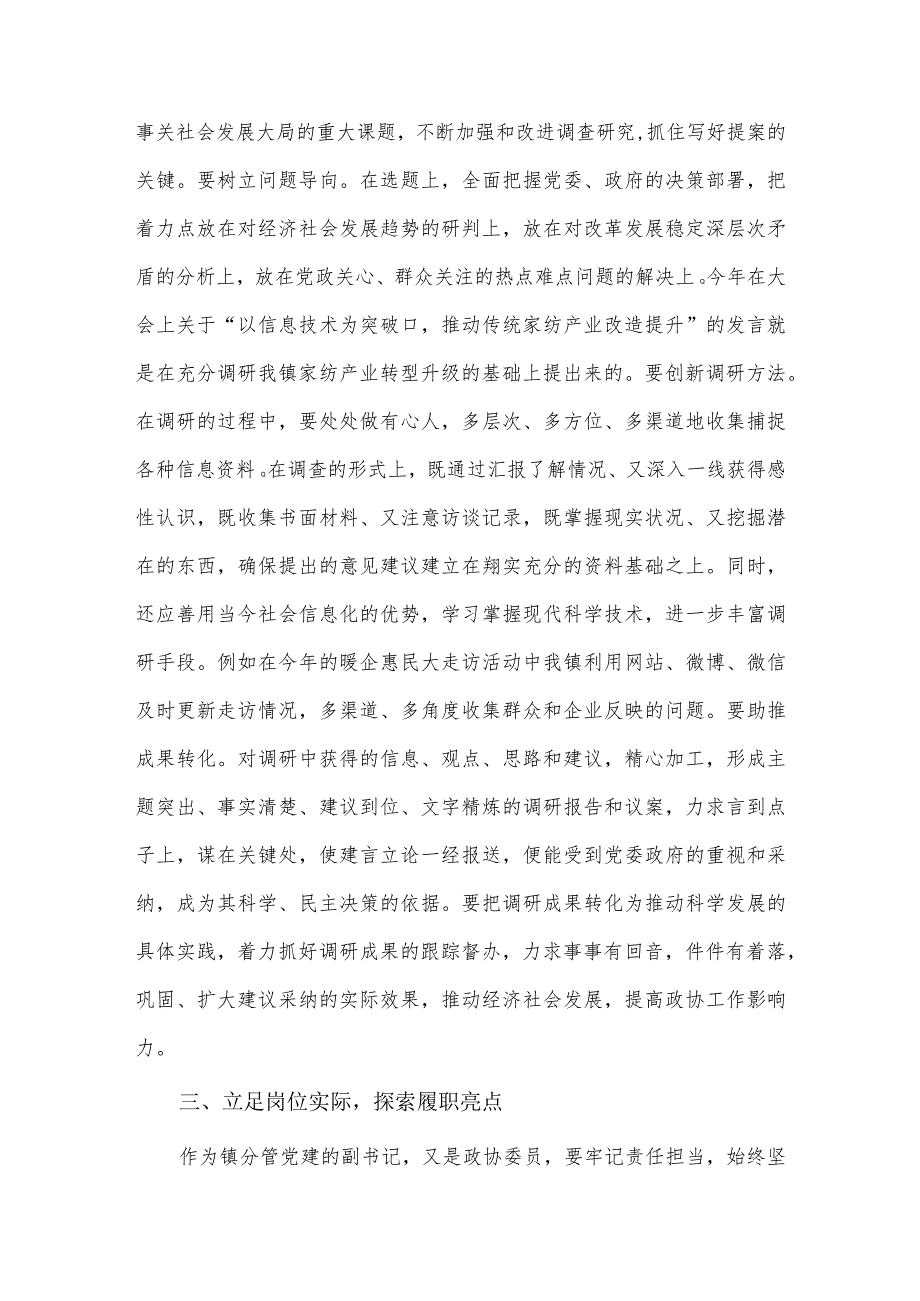 事关社会发展大局的重大课题，不断加强和改进调查研究,抓住写好提案的
关键。要树立问题导向。在选题上，全面把握党委、政府的决策部署，把
着力点放在对经济社会发展趋势的研判上，放在对改革发展稳定深层次矛
盾的分析上，放在党政关心、群众关注的热点难点问题的解决上。今年在大
会上关于“以信息技术为突破口，推动传统家纺产业改造提升”的发言就
是在充分调研我镇家纺产业转型升级的基础上提出来的。要创新调研方法。
在调研的过程中，要处处做有心人，多层次、多方位、多渠道地收集捕捉
各种信息资料。在调查的形式上，既通过汇报了解情况、又深入一线获得感
性认识，既收集书面材料、又注意访谈记录，既掌握现实状况、又挖掘潜
在的东西，确保提出的意见建议建立在翔实充分的资料基础之上。同时，
还应善用当今社会信息化的优势，学习掌握现代科学技术，进一步丰富调
研手段。例如在今年的暖企惠民大走访活动中我镇利用网站、微博、微信
及时更新走访情况，多渠道、多角度收集群众和企业反映的问题。要助推
成果转化。对调研中获得的信息、观点、思路和建议，精心加工，形成主
题突出、事实清楚、建议到位、文字精炼的调研报告和议案，力求言到点
子上，谋在关键处，使建言立论一经报送，便能受到党委政府的重视和采
纳，成为其科学、民主决策的依据。要把调研成果转化为推动科学发展的
具体实践，着力抓好调研成果的跟踪督办，力求事事有回音，件件有着落，
巩固、扩大建议采纳的实际效果，推动经济社会发展，提高政协工作影响
力。
三、立足岗位实际，探索履职亮点
作为镇分管党建的副书记，又是政协委员，要牢记责任担当，始终坚